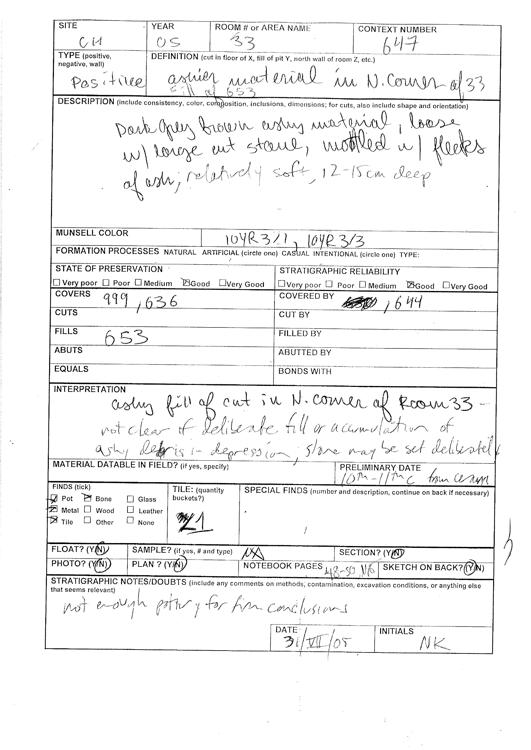 SITE YEAR ROOM # or AREA NAME CONTEXT NUMBER
CH 05 33 647
TYPE (positive, negative, wall) DEFINITION (cut in floor of X, fill of pit Y, north wall of room Z, etc.)
Positive ashier material in N. Corner of 33
fill of 653
DESCRIPTION (include consistency, color, composition, inclusions, dimensions; for cuts, also include shape and orientation)
Dark Grey brown ashy material, loose
w/ large cut stone, mottled w/ flecks
of ash, relatively soft, 12-15cm deep
MUNSELL COLOR 10YR 3/1, 10YR 3/3
FORMATION PROCESSES NATURAL ARTIFICIAL (circle one) CASUAL INTENTIONAL (circle one) TYPE:
STATE OF PRESERVATION STRATIGRAPHIC RELIABILITY
☐Very poor ☐ Poor ☐ Medium ☒Good ☐Very Good ☐Very poor ☐ Poor ☐ Medium ☒Good ☐Very Good
COVERS 999, 636 COVERED BY , 644
CUTS CUT BY
FILLS 653 FILLED BY
ABUTS ABUTTED BY
EQUALS BONDS WITH
INTERPRETATION
ashy fill of cut in N. corner of Room 33 -
not clear if deliberate fill or acumulation of
ashy debris in depression, stone may be set deliberately
MATERIAL DATABLE IN FIELD? (if yes, specify) PRELIMINARY DATE
10th-11thc from ceram
FINDS (tick) TILE: (quantity buckets?) SPECIAL FINDS (number and description, continue on back if necessary)
☒ Pot ☒ Bone ☐ Glass
☒ Metal ☐ Wood ☐ Leather 1
☒ Tile ☐ Other ☐ None
FLOAT? (Y/N) SAMPLE? (if yes, # and type) NA SECTION? (Y/N)
PHOTO? (Y/N) PLAN ? (Y/N) NOTEBOOK PAGES 48-50 SKETCH ON BACK? (Y/N)
STRATIGRAPHIC NOTES/DOUBTS (include any comments on methods, contamination, excavation conditions, or anything else
that seems relevant)
not enough pottery for firm conclusions
DATE INITIALS
31/VII/05 NK